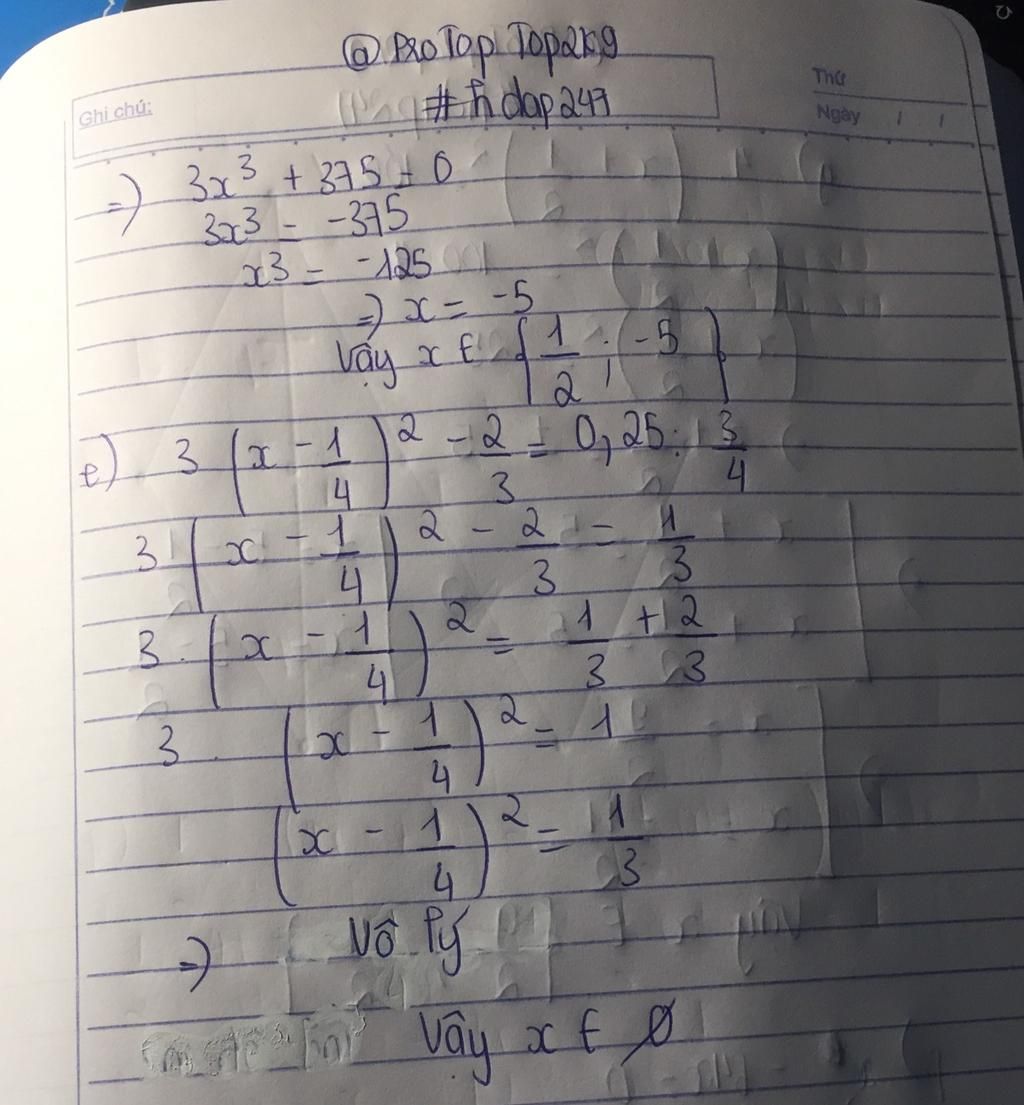 @ProTop Top2K9
Ghi chú:
#hdap247
Thứ
Ngày / /
=) 3x³ + 375 = 0
3x³ = -375
x³ = -125
=) x = -5
Vậy x ∈ {1/2 ; -5}
e) 3 (x - 1/4)² - 2/3 = 0,25 : 3/4
3 (x - 1/4)² - 2/3 = 1/3
3 . (x - 1/4)² = 1/3 + 2/3
3 . (x - 1/4)² = 1
(x - 1/4)² = 1/3
=) Vô lý
Vậy x ∈ ∅